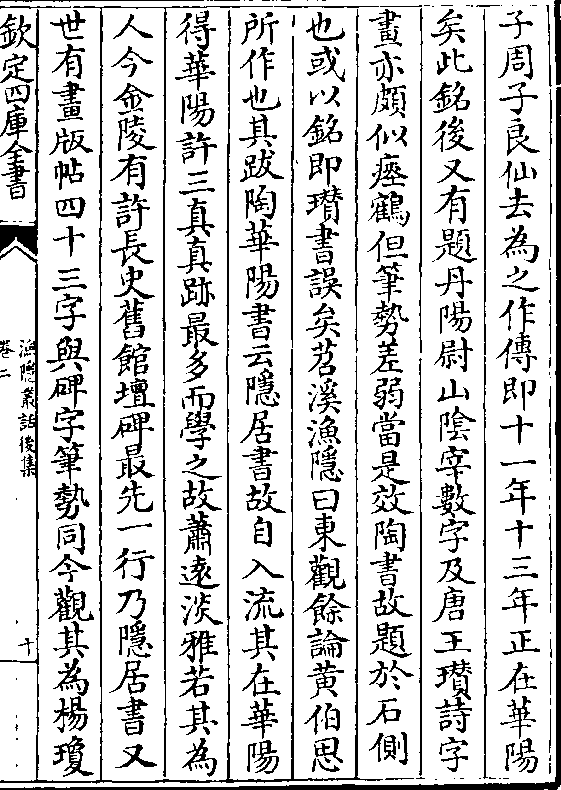 子周子良仙去為之作傳即十一年十三年正在華陽
矣此銘後又有題丹陽尉山陰宰數字及唐王瓚詩字
畫亦頗似瘞鶴但筆勢差弱當是效陶書故題於石側
也或以銘即瓚書誤矣苕溪漁隱曰東觀餘論黃伯思
所作也其跋陶華陽書云隱居書故自入流其在華陽
得華陽許三真真跡最多而學之故蕭逺淡雅若其為
人今金陵有許長史舊館壇碑最先一行乃隱居書又
世有畫版帖四十三字與碑字筆勢同今觀其為楊瓊
欽定四庫全書
漁隱叢話後集
卷二
十